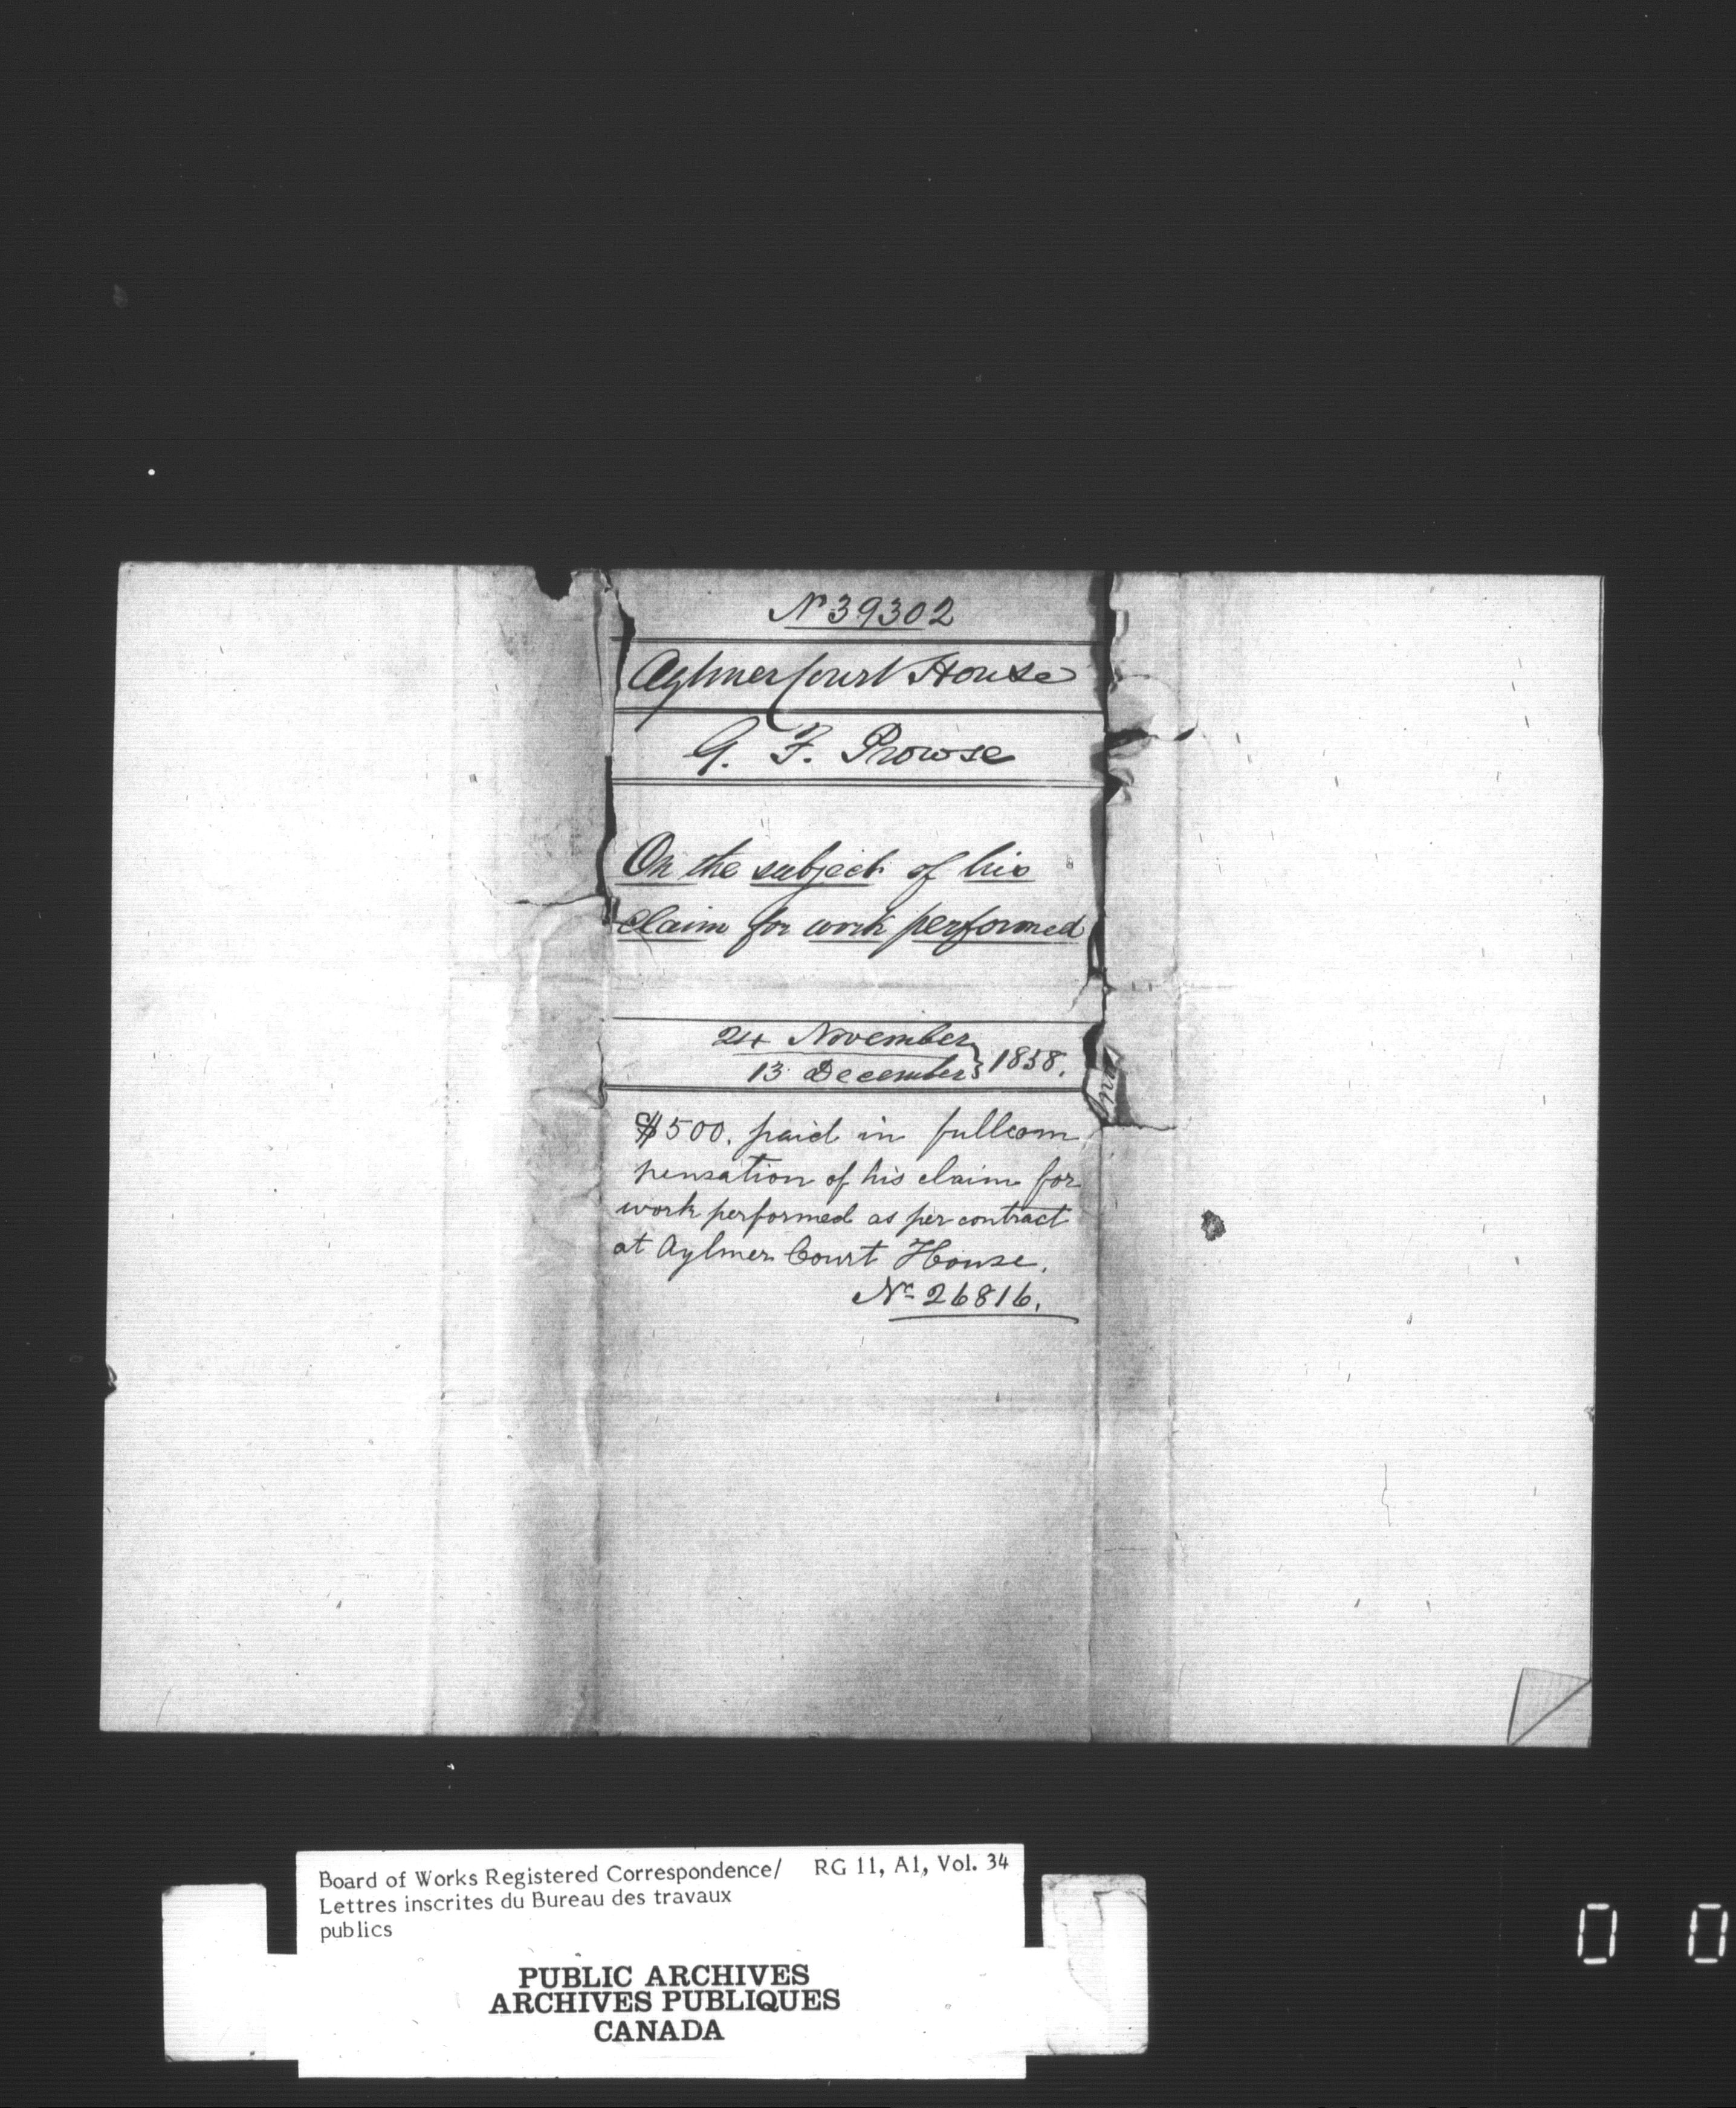 No 39302
Aylmer Court House
G. F. Prowse
On the subject of his
claim for work performed
24 November
13 December } 1858.
$500. paid in full com
pensation of his claim for
work performed as per contract
at Aylmer Court House.
No 26816.
Board of Works Registered Correspondence/ RG 11, A1, Vol. 34
Lettres inscrites du Bureau des travaux
publics
PUBLIC ARCHIVES
ARCHIVES PUBLIQUES
CANADA
0 0